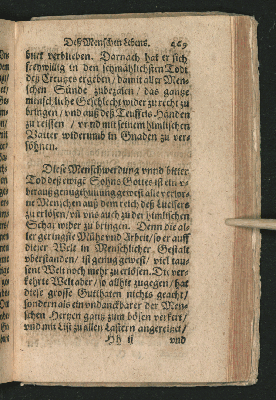 Deß Menschen lebens. 469
buct verblieben. Darnach hat er sich
freywillig in den schmählichsten Todt
deß Creutzes ergeben / damit aller Men-
schen Sünde zubezalen / das gantze
menschliche Geschlecht wider zu recht zu
bringen / vnd auß deß Teuffels Händen
zu reissen / vnd mit seinem himlischen
Vatter widerumb in Gnaden zu ver-
söhnen.
Diese Menschwerdung vnnd bitter
Tod deß ewigē Sohns Gottes ist ein v-
beraußgenugthuung gewest alle verlor-
ne Menschen auß dem reich deß Lucifers
zu erlösen / vñ vns auch zu der himlischen
Schar wider zu bringen. Denn die al-
ler geringste Mühe vnd Arbeit / so er auff
dieser Welt in Menschlicher Gestalt
vberstanden / ist genug gewest / viel tau-
sent Welt noch mehr zu erlösen. Die ver-
kehrte Welt aber / so allhie zugegen / hat
diese grosse Gutthaten nichts geacht /
sondern als ein vndanckbarer der Men-
schen Hertzen gantz zum bösen verkert /
vnd mit List zu allen Lastern angereitzet /
Hh ii vnd